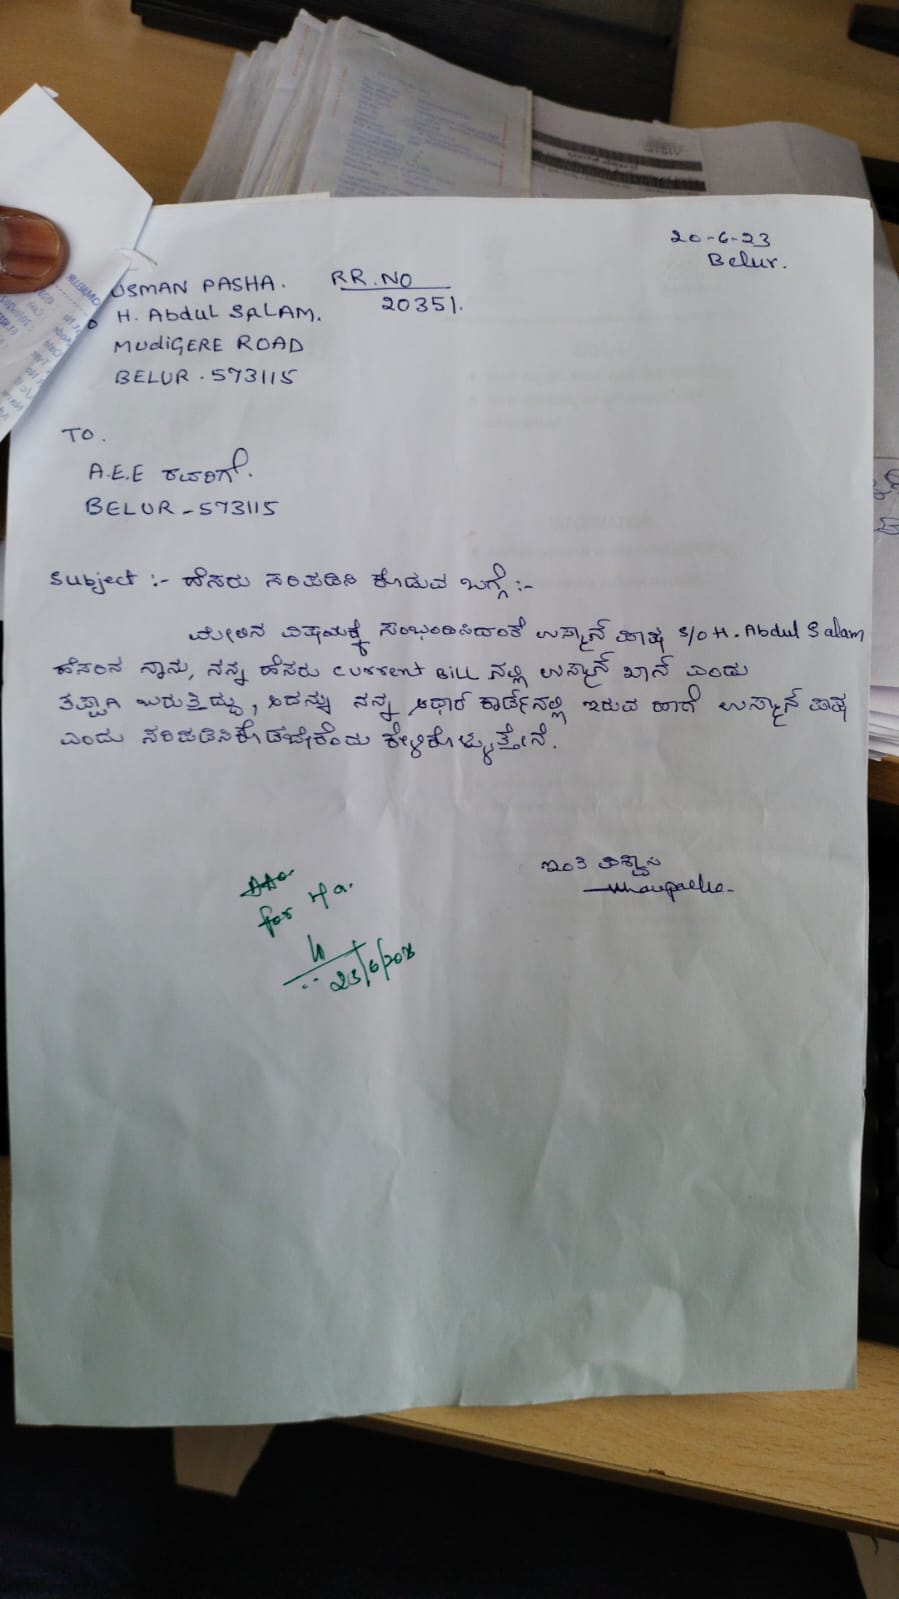 20-6-23
Belur.
USMAN PASHA. RR.NO
H. Abdul SALAM. 20351.
MUdiGERE ROAD
BELUR - 573115
TO.
A.E.E ಕವರಿಗೆ.
BELUR - 573115
Subject :- ಹೆಸರು ಸರಿಪಡಿಸಿ ಕೊಡುವ ಬಗ್ಗೆ :-
ಮೇಲಿನ ವಿಷಯಕ್ಕೆ ಸಂಬಂಧಿಸಿದಂತೆ ಉಸ್ಮಾನ್ ಪಾಷ S/O H. Abdul Salam
ಹೆಸರಿನ ನಾನು, ನನ್ನ ಹೆಸರು current Bill ನಲ್ಲಿ ಉಸ್ಮಾನ್ ಖಾನ್ ಎಂದು
ತಪ್ಪಾಗಿ ಬರುತ್ತಿದ್ದು, ಇದನ್ನು ನನ್ನ ಆಧಾರ್ ಕಾರ್ಡ್‌ನಲ್ಲಿ ಇರುವ ಹಾಗೆ ಉಸ್ಮಾನ್ ಪಾಷ
ಎಂದು ಸರಿಪಡಿಸಿಕೊಡಬೇಕೆಂದು ಕೇಳಿಕೊಳ್ಳುತ್ತೇನೆ.
ಇಂತಿ
for